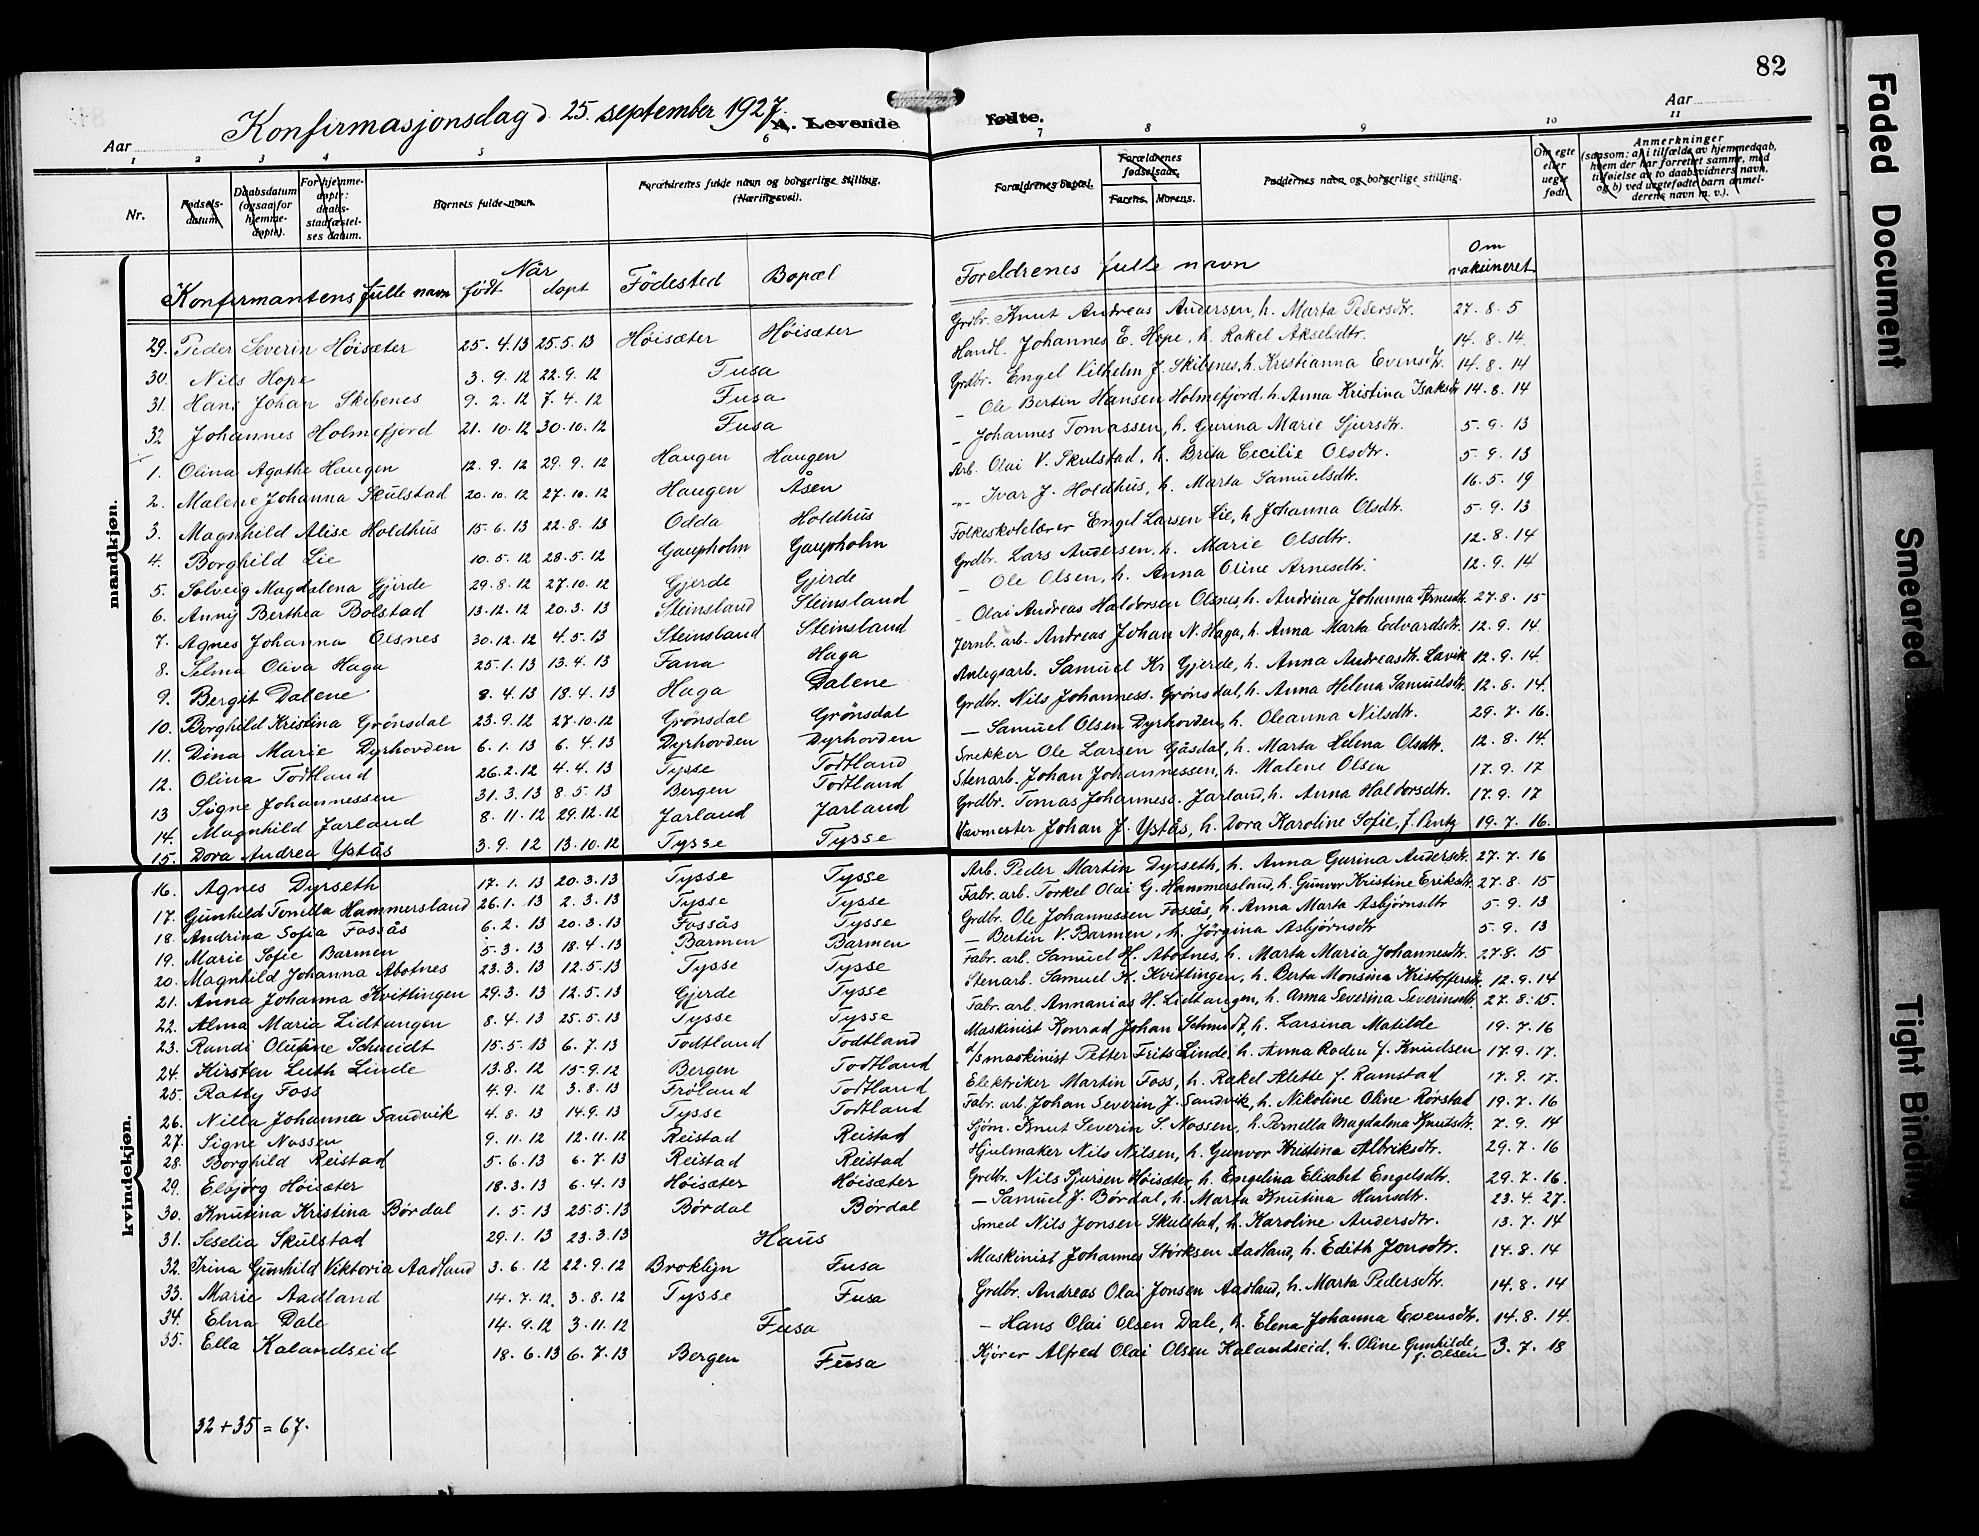 82
Konfirmasjonsdag d. 25. september 1927.
A. Levende fødte.
Aar
Aar
1 2 3 4 5 6 7 8 9 10 11
Nr.
Fødsels-datum.
Daabsdatum (ogsaa for hjemme-døpte).
For hjemme-døpte: daabs-stadfæstel-ses datum.
Barnets fulde navn.
Forældrenes fulde navn og borgerlige stilling. (Næringsvei).
Forældrenes bopæl.
Forældrenes fødselsaar.
Farens. Morens.
Faddernes navn og borgerlige stilling.
Om egte eller uegte født.
Anmerkninger
(saasom: a) i tilfælde av hjemmedaab, hvem der har forrettet samme, med tilføielse av to daabsvidners navn, og b) ved uegtefødte barn anmel-derens navn m. v.).
Konfirmantens fulle navn Når født døpt Fødested Bopæl Foreldrenes fulle navn Om vaksineret
mandkjøn.
29. Peder Severin Höisæter 25. 4. 13 25. 5. 13 Höisæter Höisæter Grdbr. Knut Andreas Andersen, h. Marta Pedersdtr. 27. 8. 5
30. Nils Hope 3. 9. 12 22. 9. 12 Fusa Handl. Johannes E. Hope, h. Rakel Akselsdtr. 14. 8. 14
31. Hans Johan Skibenes 9. 2. 12 7. 4. 12 Fusa Grdbr. Engel Vilhelm J. Skibenes, h. Kristianna Evensdtr. 14. 8. 14
32 Johannes Holmefjord 21. 10. 12 30. 10. 12 Fusa – Ole Bertin Hansen Holmefjord, h. Anna Kristina Isaksdtr 14. 8. 14
1. Olina Agathe Haugen 12. 9. 12 29. 9. 12 Haugen Haugen – Johannes Tomassen, h. Gurina Marie Sjursdtr. 5. 9. 13
2. Malene Johanna Skulstad 20. 10. 12 27. 10. 12 Haugen Åsen Arb. Olai V. Skulstad, h. Brita Cecilie Olsdtr. 5. 9. 13
3. Magnhild Alise Holdhus 15. 6. 13 22. 8. 13 Odda Holdhus –„– Ivar J. Holdhus, h. Marta Samuelsdtr. 16. 5. 19
4. Borghild Lie 10. 5. 12 28. 5. 12 Gaupholm Gaupholm Folkeskolelærer Engel Larsen Lie, h. Johanna Olsdtr. 5. 9. 13
5. Solveig Magdalena Gjerde 29. 8. 12 27. 10. 12 Gjerde Gjerde Grdbr. Lars Andersen, h. Marie Olsdtr. 12. 8. 14
6. Anny Berthea Bolstad 13. 12. 12 20. 3. 13 Steinsland Steinsland – Ole Olsen, h. Anna Oline Arnesdtr. 12. 9. 14
7. Agnes Johanna Olsnes 30. 12. 12 4. 5. 13 Steinsland Steinsland – Olai Andreas Haldorsen Olsnes, h. Andrina Johanna Arnesdtr. 27. 8. 15
8. Selma Oliva Haga 25. 1. 13 13. 4. 13 Fana Haga Jernb. arb. Andreas Johan N. Haga, h. Anna Marta Edvardsdtr. 12. 9. 14
9. Bergit Dalene 8. 4. 13 18. 4. 13 Haga Dalene Anlegsarb. Samuel Kr. Gjerde, h. Anna Andreasdtr. Lavik 12. 9. 14.
10. Borghild Kristina Grönsdal 23. 9. 12 27. 10. 12 Grönsdal Grönsdal Grdbr. Nils Johanness. Grönsdal, h. Anna Helena Samuelsdtr. 12. 8. 14.
11. Dina Marie Dyrhovden 6. 1. 13 6. 4. 13 Dyrhovden Dyrhovden – Samuel Olsen Dyrhovden, h. Oleanna Nilsdtr. 29. 7. 16.
12. Olina Todtland 26. 2. 12 4. 4. 13 Tysse Todtland Snekker Ole Larsen Gåsdal, h. Marta Helena Olsdtr. 12. 8. 14.
13 Signe Johannessen 31. 3. 13 8. 5. 13 Bergen Todtland Stenarb. Johan Johannessen, h. Malene Olsen 17. 9. 17
14. Magnhild Jarland 8. 11. 12 29. 12. 12 Jarland Jarland Grdbr. Tomas Johanness. Jarland, h. Anna Haldorsdtr. 17. 9. 17
15. Dora Andrea Ystås 3. 9. 12 13. 10. 12 Tysse Tysse Vævmester Johan J. Ystås, h. Dora Karoline Sofie, f. Pentz 19. 7. 16.
kvindekjøn.
16. Agnes Dyrseth 17. 1. 13 20. 3. 13 Tysse Tysse Arb. Peder Martin Dyrseth, h. Anna Gurina Andersdtr. 27. 7. 16
17. Gunhild Tomilla Hammersland 26. 1. 13 2. 3. 13 Tysse Tysse Fabr. arb. Torkel Olai G. Hammersland, h. Gunvor Kristine Eriksdtr. 27. 8. 15
18. Andrina Sofia Fossås 6. 2. 13 20. 3. 13 Fossås Tysse Grdbr. Ole Johannessen Fossås, h. Anna Marta Asbjörnsdtr 5. 9. 13
19. Marie Sofie Barmen 5. 3. 13 18. 4. 13 Barmen Barmen – Bertin V. Barmen, h. Jörgina Asbjörnsdtr 5. 9. 13
20. Magnhild Johanna Abotnes 23. 3. 13 12. 5. 13 Tysse Tysse Fabr. arb. Samuel H. Abotnes, h. Marta Maria Johannesdtr. 27. 8. 15
21. Anna Johanna Kvittingen 29. 3. 13 12. 5. 13 Gjerde Tysse Stenarb. Samuel H. Kvittingen, h. Berta Monsina Kristoffersdtr. 12. 9. 14
22. Alma Maria Lidtangen 8. 4. 13 25. 5. 13 Tysse Tysse Fabr. arb. Annanias H. Lidtangen, h. Anna Severina Severinsdtr. 27. 8. 15.
23. Randi Olufine Schmidt 15. 5. 13 6. 7. 13 Todtland Todtland Maskinist Konrad Johan Schmidt, h. Larsina Matilde 19. 7. 16
24. Kirsten Luth Linde 13. 8. 12 15. 9. 12 Bergen Todtland d/s maskinist Petter Frits Linde, h. Anna Roden f. Knudsen 17. 9. 17.
25. Ratty Foss 4. 9. 12 3. 8. 13 Fröland Todtland Elektriker Martin Foss, h. Rakel Alette f. Ramstad 17. 9. 17.
26. Nilla Johanna Sandvik 4. 8. 13 14. 9. 13 Tysse Todtland Fabr. arb. Johan Severin J. Sandvik, h. Nikoline Oline Rörstad 19. 7. 16
27. Signe Nossen 9. 11. 12 12. 11. 12 Reistad Reistad Sjöm. Knut Severin S. Nossen, h. Pernella Magdalena Knutsdtr. 7. 9. 14
28. Borghild Reistad 5. 6. 13 6. 7. 13 Reistad Reistad Hjulmaker Nils Nilsen, h. Gunvor Kristina Albriksdtr. 29. 7. 16
29. Elbjörg Höisæter 18. 3. 13 6. 4. 13 Höisæter Höisæter Grdbr. Nils Sjursen Höisæter, h. Engelina Elisabet Engelsdtr. 29. 7. 16.
30. Knutina Kristina Bördal 1. 5. 13 25. 5. 13 Bördal Bördal – Samuel J. Bördal, h. Marta Knutina Hansdtr. 23. 4. 27.
31. Seselia Skulstad 29. 1. 13 23. 3. 13 Haus Smed Nils Jonsen Skulstad, h. Karoline Andersdtr. 13. 7. 14
32. Irina Gunhild Viktoria Aadland 3. 6. 12 22. 9. 12 Broklyn Fusa Maskinist Johannes Störksen Aadland, h. Edith Jonsdtr. 14. 8. 14
33. Marie Aadland 14. 7. 12. 3. 8. 12 Tysse Fusa Grdbr. Andreas Olai Jonsen Aadland, h. Marta Pedersdtr. 14. 8. 14
34. Elna Dale 14. 9. 12 3. 11. 12 Fusa – Hans Olai Olsen Dale, h. Elena Johanna Evensdtr. 14. 8. 14.
35. Ella Kalandseid 18. 6. 13 6. 7. 13 Bergen Fusa Kjörer Alfred Olai Olsen Kalandseid, h. Oline Gunhilde f. Olsen 3. 7. 18
32 + 35 = 67.
Faded Document
Smeared
Tight Binding